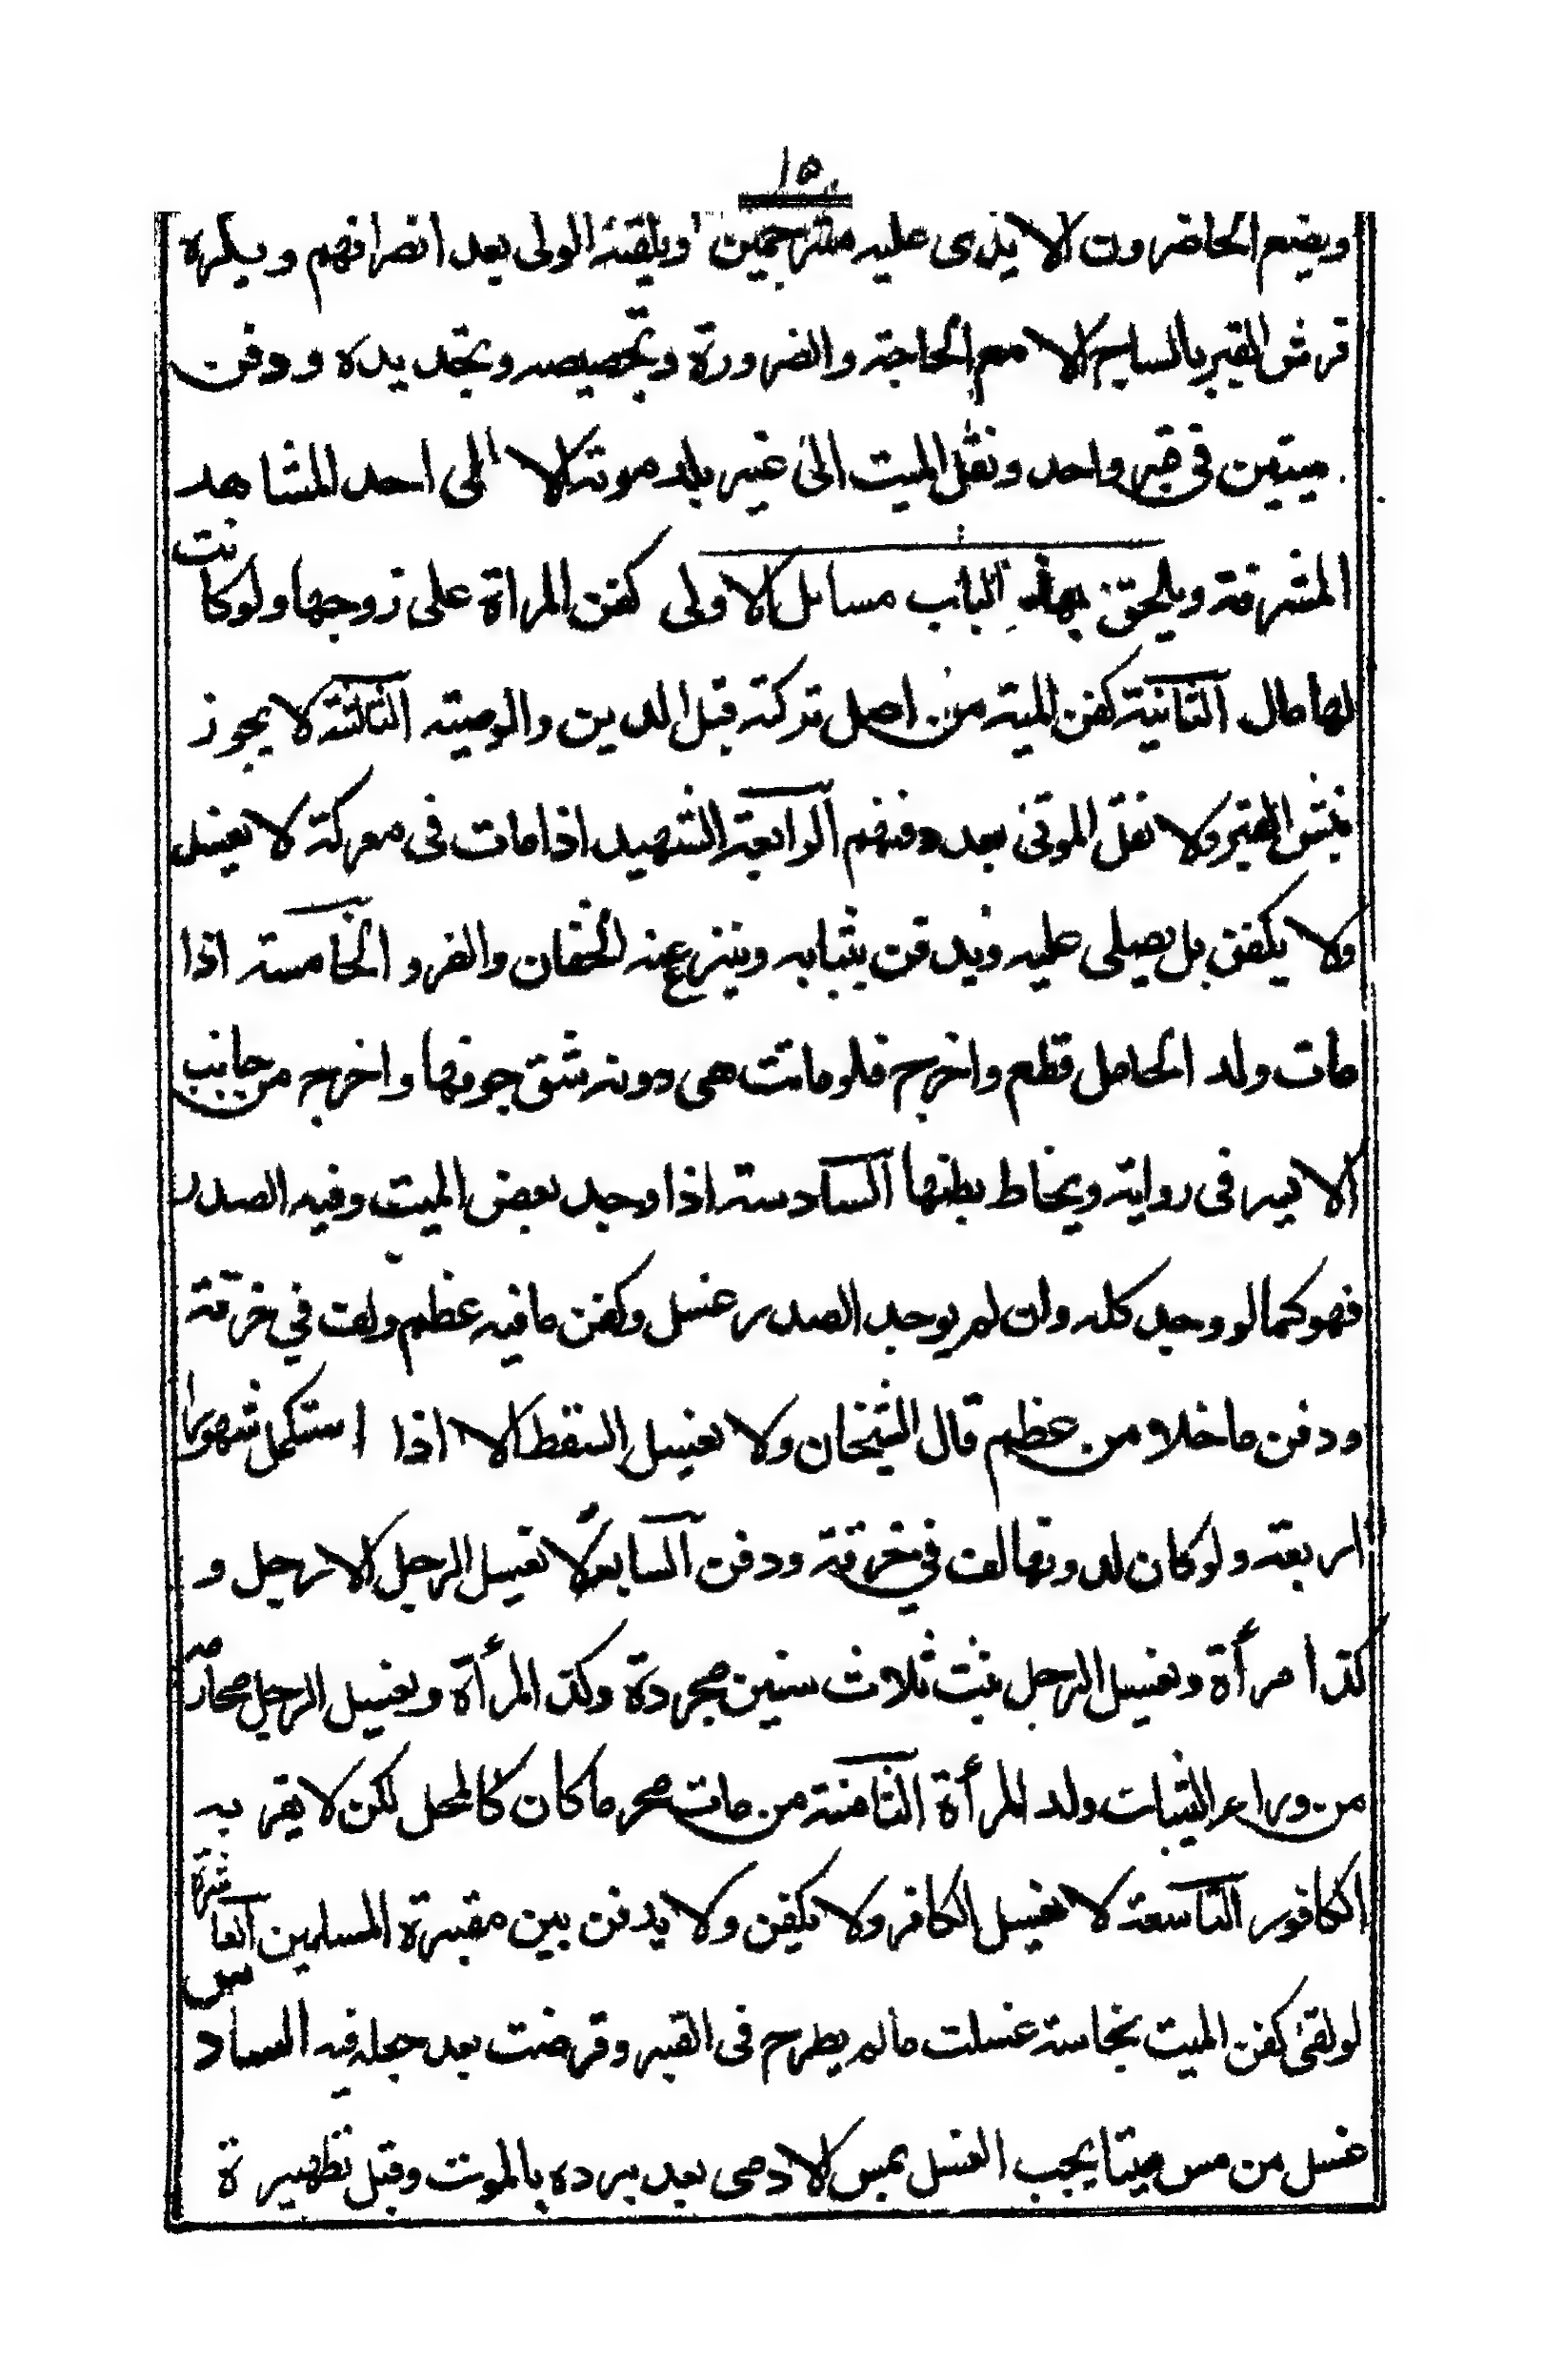 ١٥
ويضع الحاضرون الايدى عليه مترحمين ويلقنه الولى بعد انصرافهم ويكره
فرش القبر بالساج الا مع الحاجة والضرورة وتجصيصه وتجديده ودفن
ميتين فى قبر واحد ونقل الميت الى غير بلد موته الا الى احد المشاهد
المشرفة ويلحق بهذا الباب مسائل الاولى كفن المراة على زوجها ولو كانت
لها مال الثانية كفن الميت من اصل تركته قبل الدين والوصية الثالثة لا يجوز
نبش القبر ولا نقل الموتى بعد دفنهم الرابعة الشهيد اذا مات فى معركة لا يغسل
ولا يكفن بل يصلى عليه ويدفن بثيابه وينزع عنه الخفان والفرو الخامسة اذا
مات ولد الحامل قطع واخرج فلو ماتت هى دونه شق جوفها واخرج من جانب
الايسر فى رواية ويخاط بطنها السادسة اذا وجد بعض الميت وفيه الصدر
فهو كما لو وجد كله وان لم يوجد الصدر غسل وكفن ما فيه عظم ولف في خرقة
ودفن ما خلا من عظم قال الشيخان ولا يغسل السقط الا اذا استكمل شهورا
اربعة ولو كان لدونها لف في خرقة ودفن السابعة لا يغسل الرجل الا رجل و
كذا امرأة ويغسل الرجل بنت ثلاث سنين مجردة وكذا المرأة ويغسل الرجل محارمه
من وراء الثياب ولد المرأة الثامنة من مات محرما كان كالمحل لكن لا يقربه
الكافور التاسعة لا يغسل الكافر ولا يكفن ولا يدفن بين مقبرة المسلمين العاشرة
لو لقى كفن الميت نجاسة غسلت ما لم يطرح فى القبر وقرضت بعد جعله فيه السادس
غسل من مس ميتا يجب الغسل بمس الادمى بعد برده بالموت وقبل تطهيرة